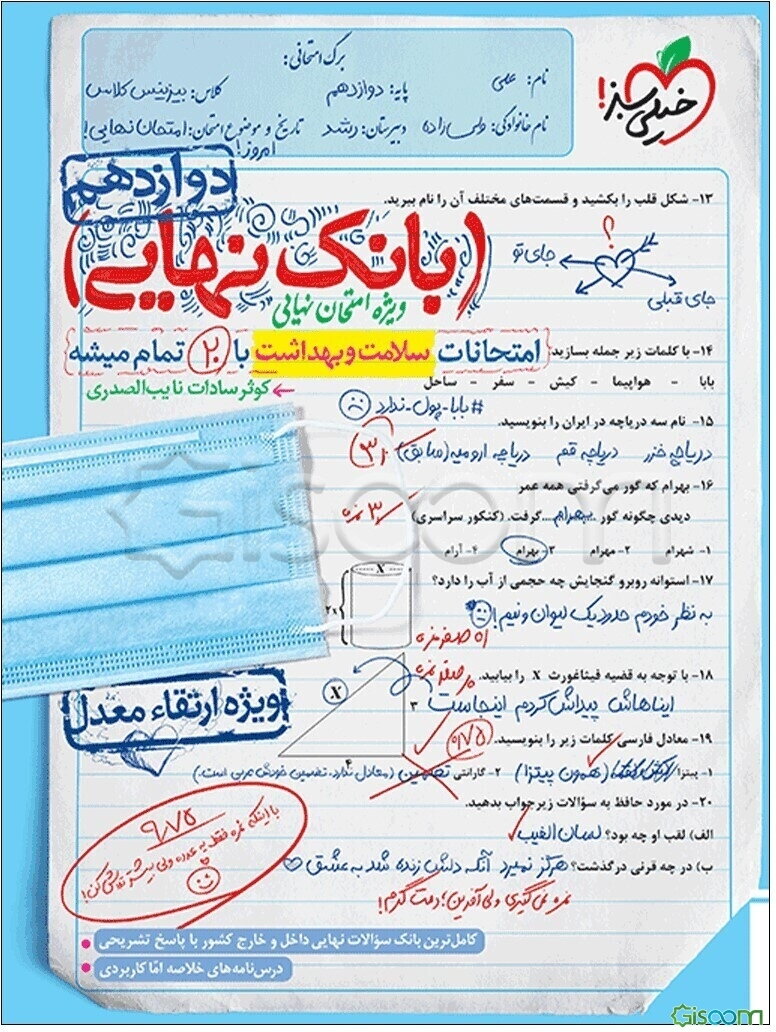 برگ امتحانی:
نام: علی
پایه: دوازدهم
کلاس: بیزینس کلاس
نام خانوادگی: ولی زاده
دبیرستان: رشد
تاریخ و موضوع امتحان: امتحان نهایی!
امروز!
خیلی سبز!
دوازدهم
۱۳- شکل قلب را بکشید و قسمت‌های مختلف آن را نام ببرید.
(بانک نهایی)
؟
جای تو
جای قبلی
ویژه امتحان نهایی
۱۴- با کلمات زیر جمله بسازید:
امتحانات سلامت و بهداشت با ۲۰ تمام میشه
بابا - هواپیما - کیش - سفر - ساحل
کوثر سادات نایب‌الصدری
#بابا-پول-ندارد
۱۵- نام سه دریاچه در ایران را بنویسید.
دریاچه خزر دریاچه قم دریاچه ارومیه (سابق)
۱۶- بهرام که گور می‌گرفتی همه عمر
دیدی چگونه گور ...بهرام... گرفت. (کنکور سراسری)
۱- شهرام ۲- مهرام ۳- بهرام ۴- آرام
Gisoom
X
2x
۱۷- استوانه روبرو گنجایش چه حجمی از آب را دارد؟
به نظر خودم حدود یک لیوان و نیم!
۱۸- با توجه به قضیه فیثاغورث X را بیابید.
ویژه ارتقاء معدل
X
۳
ایناهاش پیداش کردم اینجاست
۱۹- معادل فارسی کلمات زیر را بنویسید.
۰/۷۵
۴
۱- پیتزا (همون پیتزا) ۲- گارانتی تضمین (معادل ندارد، تضمین خودش عربی است.)
۲۰- در مورد حافظ به سؤالات زیر جواب بدهید.
الف) لقب او چه بود؟ لسان الغیب
ب) در چه قرنی درگذشت؟ هرگز نمیرد آنکه دلش زنده شد به عشق
۹/۷۵
با اینکه نمره فقط یه عدده ولی بیشتر تلاش کن!
نمره نمی‌گیری ولی آفرین؛ دمت گرم!
کامل‌ترین بانک سؤالات نهایی داخل و خارج کشور با پاسخ تشریحی
درس‌نامه‌های خلاصه امّا کاربردی
Gisoom